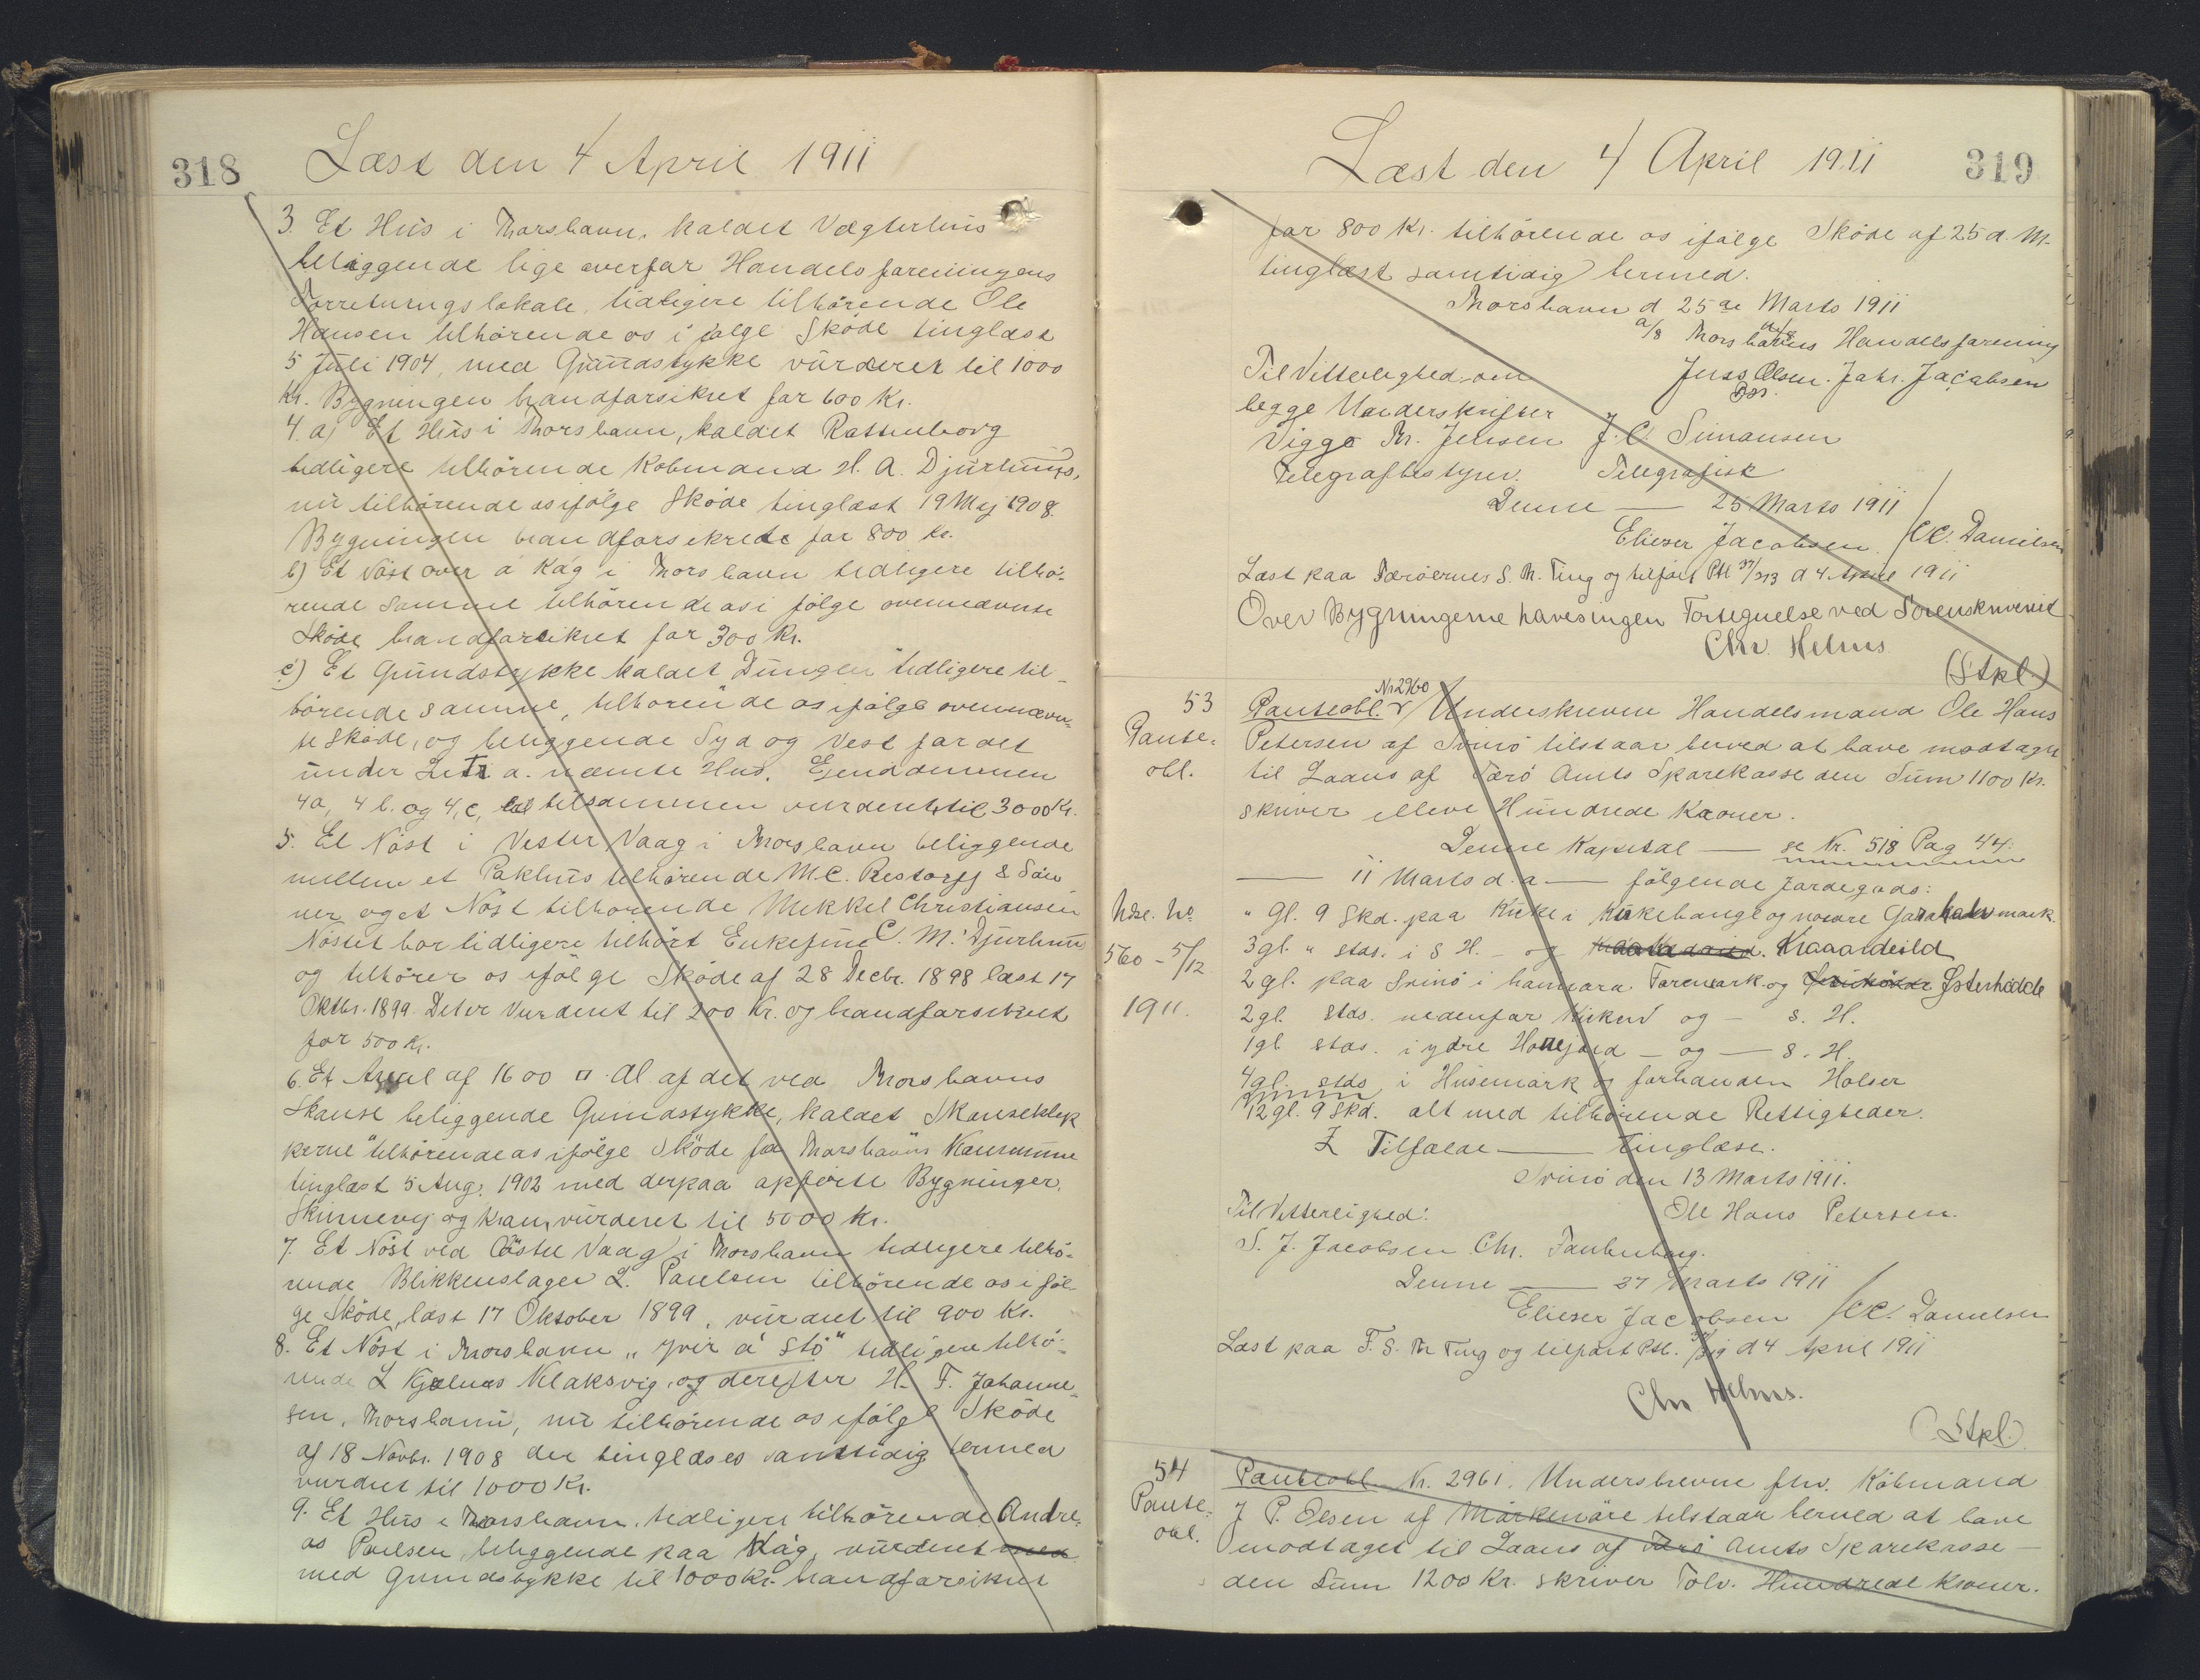 318
Læst den 4 April 1911
3. Et Hus i Thorshavn, kaldet Vægterhus
beliggende lige overfor Handelsforeningens
Forretningslokale, tidligere tilhörende Ole
Hansen tilhörende os i følge Sköde tinglæst
5 Juli 1904, med Grundstykke vurderet til 1000
Kr. Bygningen brandforsikret for 600 Kr.
4. a) Et Hus i Thorshavn, kaldet Rattenborg
tidligere tilhörende Købmand H. A. Djurhuus,
nu tilhörende os ifölge Sköde tinglæst 19 Maj 1908.
Bygningen brandforsikrede for 800 Kr.
b) Et Nöst over á Kág i Thorshavn tidligere tilhö-
rende samme tilhörende os i fölge ovennævnte
Sköde brandforsikret for 300 Kr.
c) Et Grundstykke kaldet Dungen tidligere til-
hörende samme, tilhörende os ifölge ovennævn-
te Sköde, og beliggende Syd og Vest for det
under Litr a. nævnte Hus. Ejendommen
4a, 4 b. og 4,c, tilsammen vurderet til 3000 Kr.
5. Et Nöst i Vester Vaag i Thorshavn beliggende
mellem et Pakhus tilhörende M.C. Restorff & Sön-
ner og et Nöst tilhörende Mikkel Christiansen
Nöstet har tidligere tilhört Enkefrue C. M. Djurhuus
og tilhörer os ifölge Sköde af 28 Decbr. 1898 læst 17
Oktbr. 1899. Det er vurderet til 200 Kr. og brandforsikret
for 500 Kr.
6. Et Areal af 1600 □ Al af det ved Thorshavns
Skanse beliggende Grundstykke, kaldet Skanseklep
perne" tilhörende os ifölge Sköde fra Thorshavns Kommune
tinglæst 5 Aug. 1902 med derpaa opförte Bygninger,
Skinnevej og Kran, vurderet til 5000 Kr.
7. Et Nöst ved Öster Vaag i Thorshavn tidligere tilhö-
rende Blikkenslager L. Paulsen tilhörende os i föl-
ge Sköde, læst 17 Oktober 1899, vurderet til 900 Kr.
8. Et Nöst i Thorshavn „yvir á Stö" tidligere tilhö-
rende I Kjølnes Klaksvig, og derefter H. F. Johanne-
sen, Thorshavn, nu tilhörende os ifölge Sköde
af 18 Novbr. 1908 der tinglæses samtidig hermed
vurderet til 1000 Kr.
9. Et Hus i Thorshavn, tidligere tilhörende Andre-
as Poulsen, beliggende paa Kág, vurderet med
med Grundstykke til 1000 Kr. brandforsikret
Læst den 4 April 1911
319
for 800 Kr. tilhörende os ifölge Sköde af 25 d. M.
tinglæst samtidig hermed.
Thorshavn d 25de Marts 1911
a/s Thorshavns Handelsforening
Til Vitterlighed om
Jens Olsen. Johs. Jacobsen
begge Underskrifter
Viggo Th. Jensen J. C. Simonsen
Telegrafbestyrer. Telegrafist
Denne — 25 Marts 1911
Eliezer Jacobsen / CC. Danielsen
Læst paa Færöernes S. Th. Ting og tilfört Ptl 37/313 d 4 April 1911
Over Bygningerne haves ingen Fortegnelse ved Sorenskriveriet
Chr. Helms
(Stpl.)
53
Pante-
obl.
Nr 2960
Panteobl. Underskrevne Handelsmand Ole Hans
Petersen af Svinö tilstaar herved at have modtaget
til Laans af Færö Amts Sparekasse den Sum 1100 Kr.
skriver elleve Hundrede Kroner.
Denne Kapital — se Nr. 518 Pag 44.
— 11 Marts d. a — fölgende Jordegods:
Udsl. No
560 - 5/12
1911.
" Gl. 9 Skd. paa Kirke i Kirkehauge og nordre Garahalv mark.
3 gl. " stds. i S H. — og Kraaardeild
2 gl. paa Svinö i hannara Faremark og Østerhødde
2 gl. stds. nedenfor Kirken og — s. H.
1 gl. stds. i ydre Honejord — og — s. H.
4 gl. stds i Husemark og forhanden Holser
12 gl. 9 Skd. alt med tilhörende Rettigheder.
I Tilfælde — tinglæse.
Svinö den 13 Marts 1911.
Til Vitterlighed:
Ole Hans Petersen.
S. J. Jacobsen Chr. Fauhenborg.
Denne — 27 Marts 1911
Eliezer Jacobsen / CC. Danielsen
Læst paa F. S. Th Ting og tilfört Ptl. d 4 April 1911
Chr Helms.
(Stpl.)
54
Pante-
obl.
Panteobl. Nr. 2961. Underskrevne fhv. Köbmand
J P. Olsen af Mörkenöre tilstaar herved at have
modtaget til Laans af Færö Amts Sparekasse —
den Sum 1200 Kr. skriver Tolv. Hundrede Kroner.